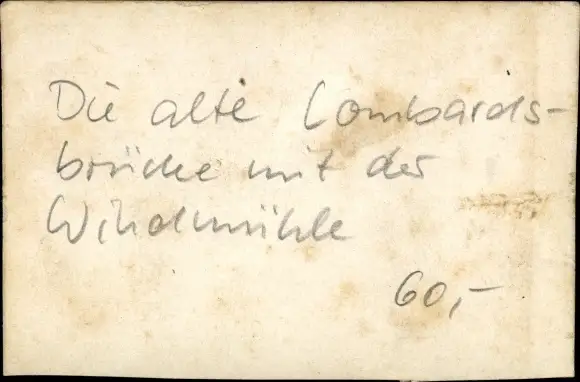 Die alte Lombards-
brücke mit der
Windmühle
60,-